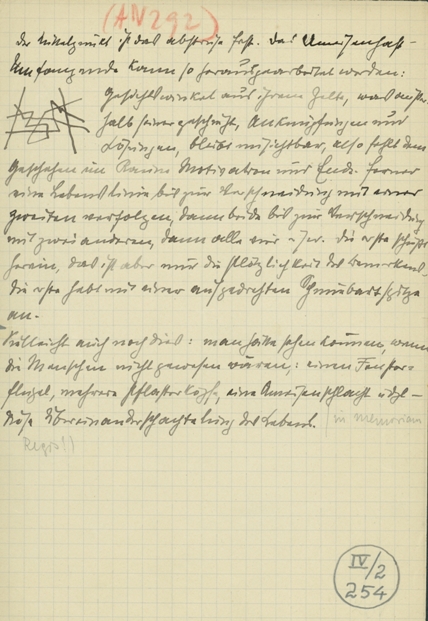 (AN 292)
Der Mittelpunkt ist das abstruse Fest. Das Ameisenhaft-
Umfangende kann so herausgearbeitet werden:
Gesichtswinkel aus ihrem Zelt, was außer-
halb seiner geschieht, Anknüpfungen und
Lösungen, bleibt unsichtbar, also fehlt dem
Geschehen im Raum Motivation und Ende. Ferner
eine Lebenslinie bis zur Verschneidung mit einer
zweiten verfolgen, dann beide bis zur Verschneidung
mit zwei anderen, dann alle vier usw. Die erste
herein, das ist aber nur die Plötzlichkeit des
die erste hebt mit einer aufgedrehten Schnurbartspitze
an.
Vielleicht auch noch dies: man hätte sehen können, wenn
die Menschen nicht gewesen wären: einen Fenster-
flügel, mehrere Pflasterköpfe, eine Ameisenschlacht
Übereinanderschachtelung des Lebens. (in memoriam
Regis!)
IV/2
254